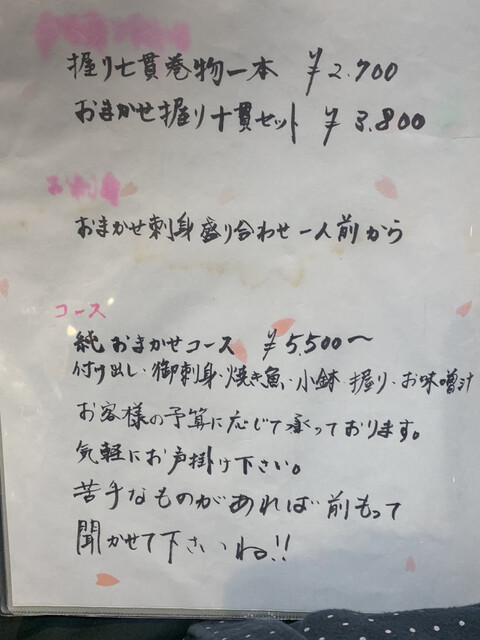 握り七貫巻物一本 ¥2.700
おまかせ握り十貫セット ¥3.800
お刺身
おまかせ刺身盛り合わせ一人前から
コース
純おまかせコース ¥5,500〜
付け出し・御刺身・焼き魚・小鉢 握り・お味噌汁
お客様の予算に応じて承っております。
気軽にお声掛け下さい。
苦手なものがあれば前もって
聞かせて下さいね!!